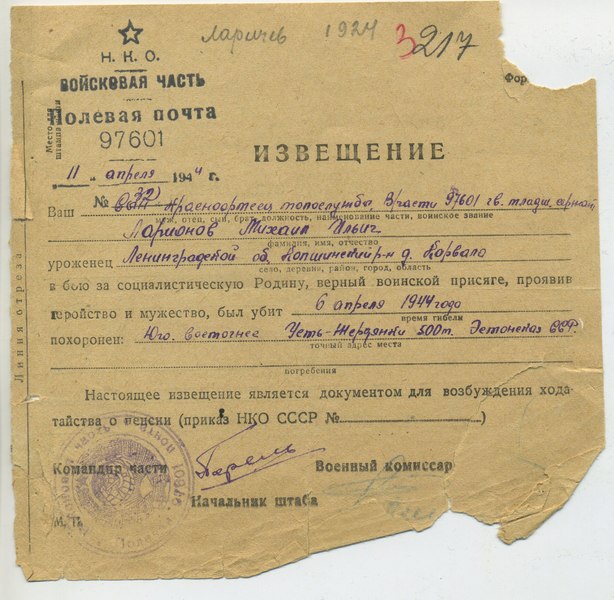 1924
3217
Н. К. О.
ВОЙСКОВАЯ ЧАСТЬ
Полевая почта
97601
Место для штампа части
Фор
ИЗВЕЩЕНИЕ
„11" апреля 1944 г.
№ 32)
Ваш Сын Красноармеец В/части 97601 гв. младш. сержант
муж, отец, сын, брат, должность, наименование части, воинское звание
Ларионов Михаил Ильич
фамилия, имя, отчество
уроженец Ленинградской об. Копшинский р-н д. Корвала
село, деревня, район, город, область
в бою за социалистическую Родину, верный воинской присяге, проявив
геройство и мужество, был убит 6 апреля 1944 года
время гибели
похоронен: Юго. восточнее Усть-Жердянки 500 м. Эстонская ССР.
точный адрес места
погребения
Настоящее извещение является документом для возбуждения хода-
тайства о пенсии (приказ НКО СССР № )
Командир части
Военный комиссар
Начальник штаба
М. П.
Линия отреза